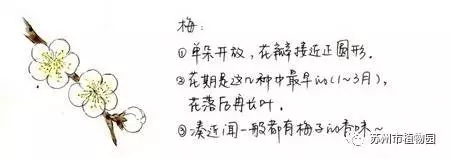 梅:
①单朵开放,花瓣接近正圆形.
②花期是这几种中最早的(1~3月),
花落后再长叶.
③凑近闻一般都有梅子的香味~
苏州市植物园